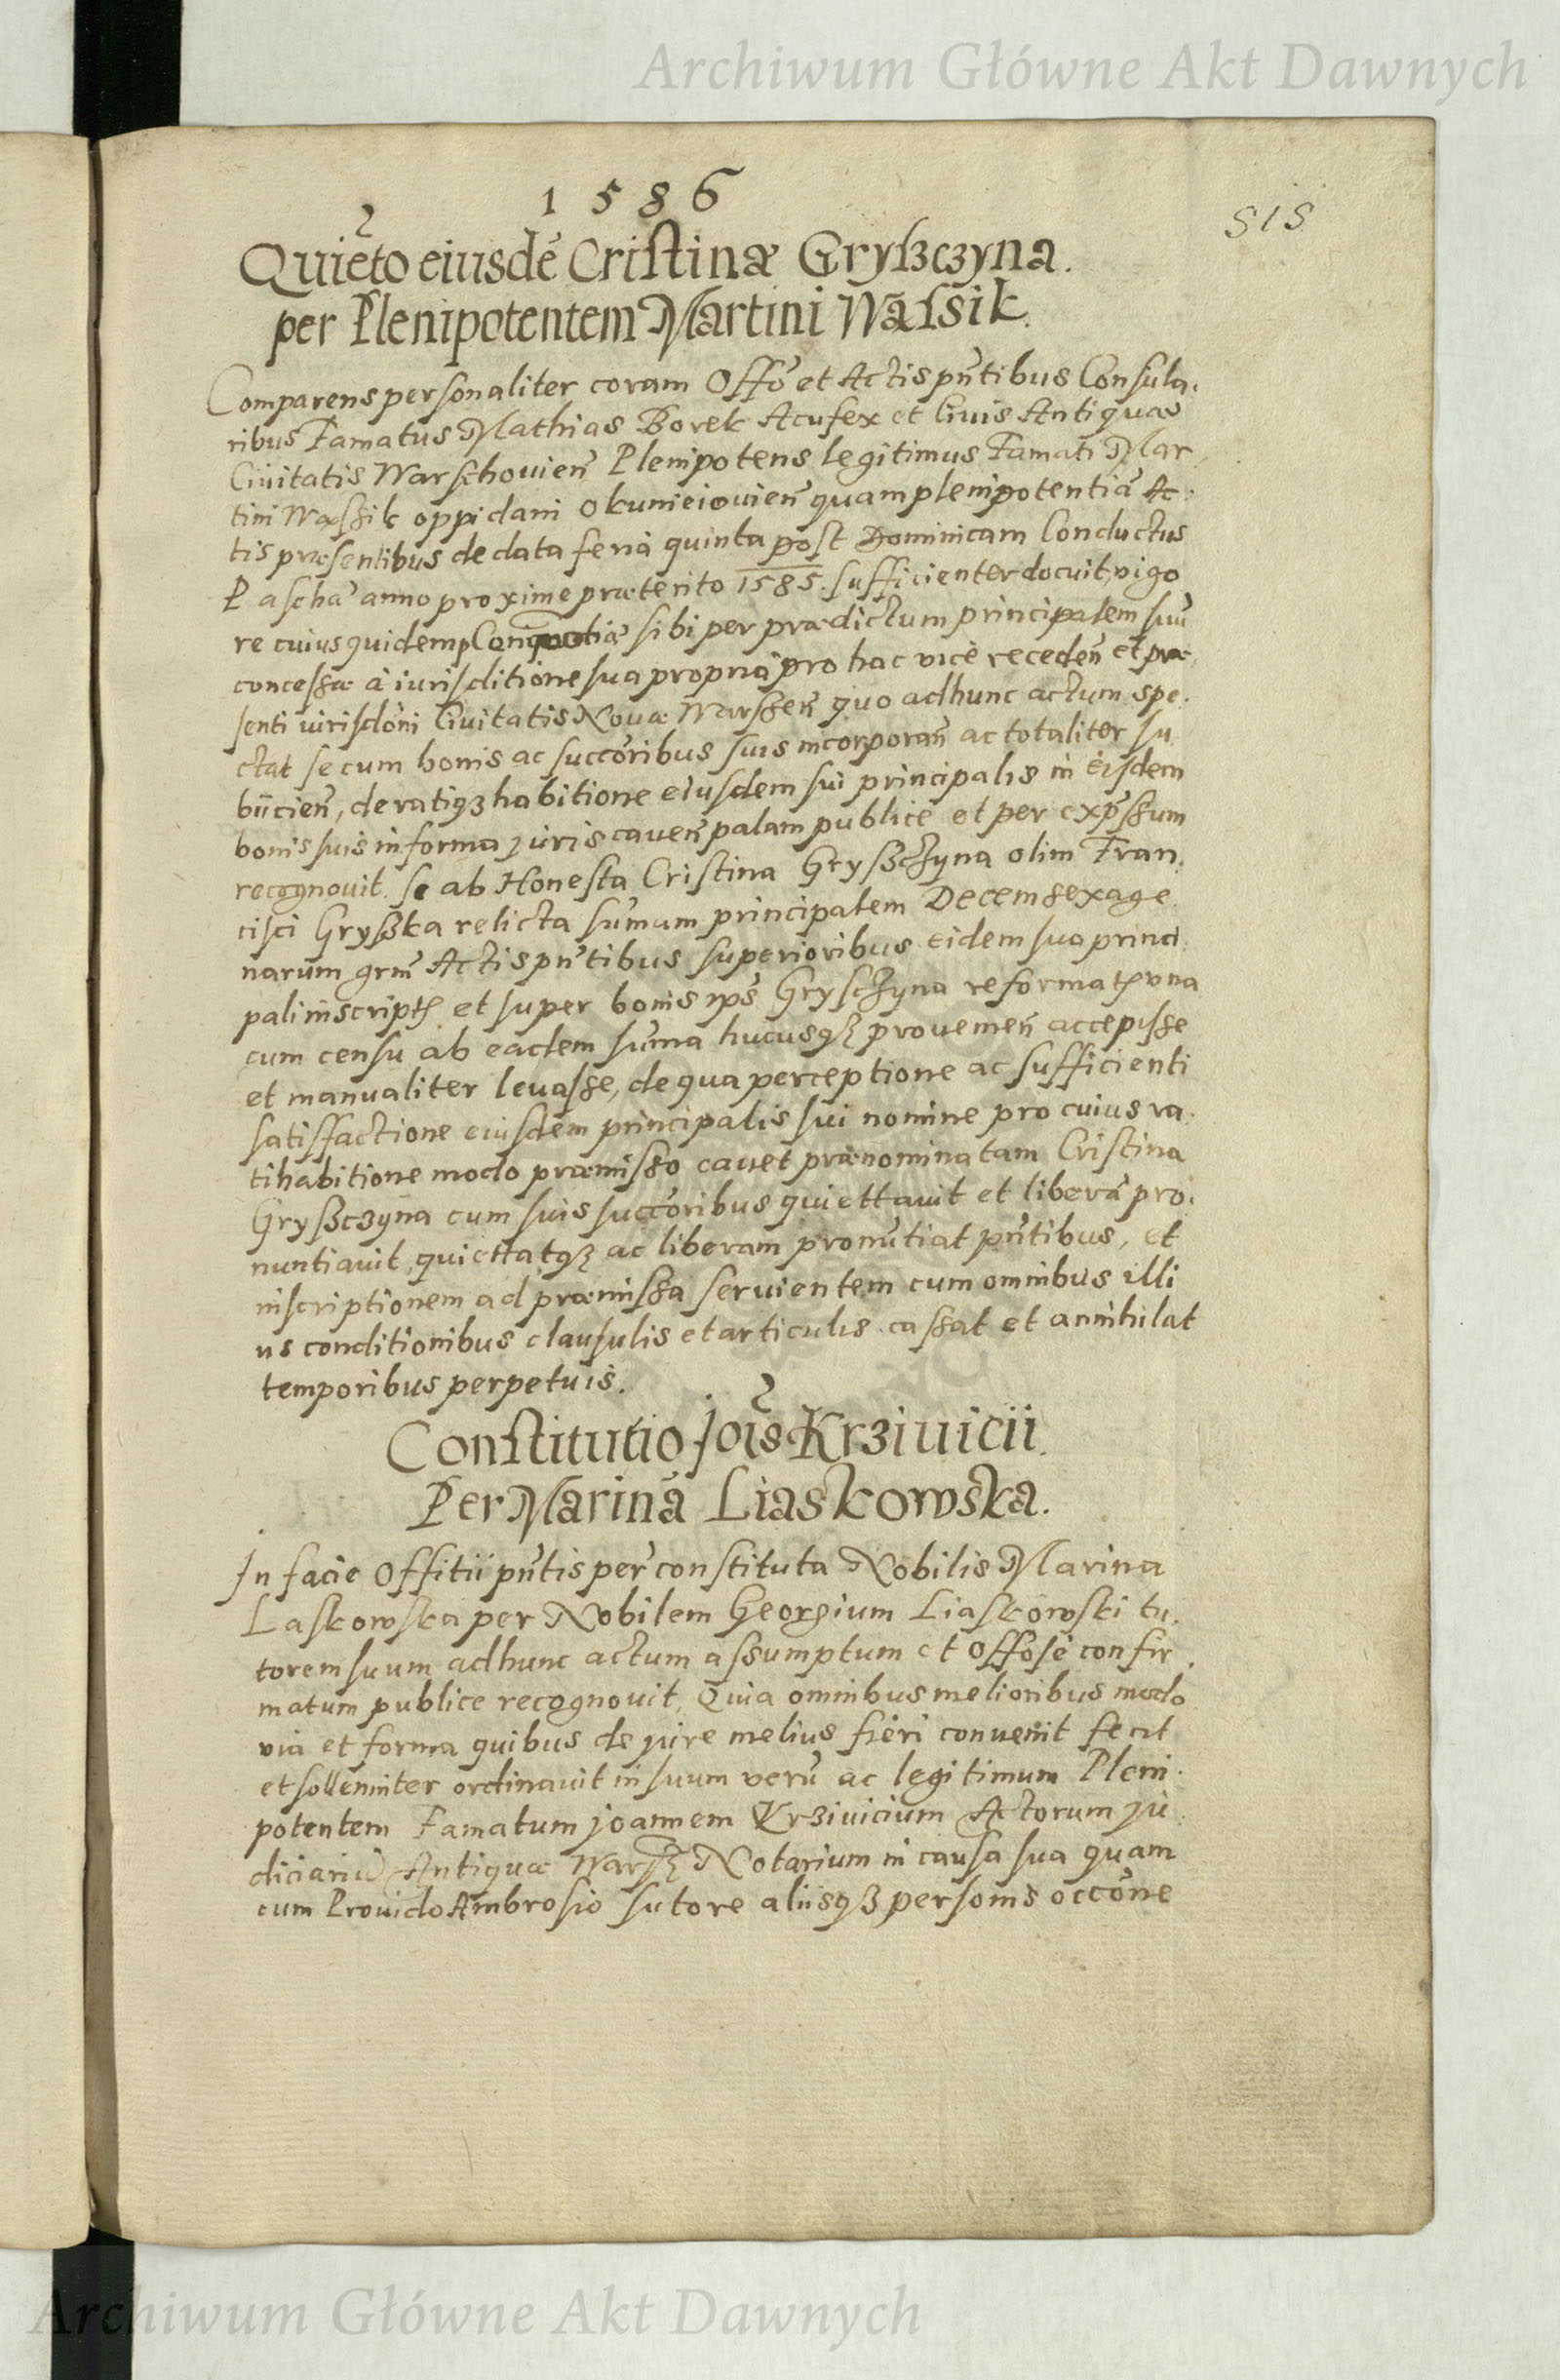 Archiwum Główne Akt Dawnych
1586
515
Quieto eiusdẽ Cristinæ Gryſzczyna.
per Plenipotentem Martini Wąſsik.
Comparens personaliter coram Offõ et Actis pñtibus Consula.
ribus Famatus Mathias Borek Acufex et Ciuis Antiquae
Ciuitatis Warschouieñ Plenipotens legitimus Famati Mar
tini Wąſsik oppidani Okunieiouieñ quam plenipotentiã Ac:
tis præsentibus de data feria quinta post Dominicam Conductus
Paschã anno proxime præterito 1585. sufficienter docuit, vigo
re cuius quidem sibi per prædictum principalem suũ
concessæ à iurisditione sua propria pro hac vice recedeñ et præ,
senti iurisdõni Ciuitatis Nouæ Warsseñ quo ad hunc actum spe.
ctat se cum bonis ac succõribus suis incorporañ ac totaliter su
biicieñ, de ratiqz habitione eiusdem sui principalis in eisdem
bonis suis in forma juris caueñ palam publice et per exp̃ssum
recognouit. se ab Honesta Cristina Gryszczyna olim Fran.
cisci Gryszka relicta sum̃am principalem Decem sexage
narum grm̃ Actis pñtibus superioribus eidem suo princi
pali inscriptꝭ et super bonis ip̃s Gryszczyna reformatꝭ vna
cum censu ab eadem sum̃a hucusqz prouenieñ accepisse
et manualiter leuasse, de qua perceptione ac sufficienti
satisfactione eiusdem principalis sui nomine pro cuius ra.
tihabitione modo præmisso cauet prænominatam Cristina
Gryszczyna cum suis succõribus quiettauit et liberã pro.
nuntiauit, quiettatqz ac liberam pronũtiat pñtibus, et
inscriptionem ad præmissa seruientem cum omnibus illi
us conditionibus clausulis et articulis cassat et annihilat
temporibus perpetuis.
Constitutio Jois̃ Krziuicii.
Per Marinã Liaskowska.
In facie Offitii pñtis per̃ constituta Nobilis Marina
Laskowska per Nobilem Georgium Liaskowski tu.
torem suum ad hunc actum assumptum et Offõse confir.
matum publice recognouit, Quia omnibus melioribus modo
via et forma quibus de jure melius fieri conuenit fecit
et solleniter ordinauit in suum verũ ac legitimum Pleni.
potentem Famatum joannem Krziuicium Actorum ju
diciariũ Antiquæ Warsz Notarium in causa sua quam
cum Prouido Ambrosio sutore aliisqz personis occõne
Archiwum Główne Akt Dawnych